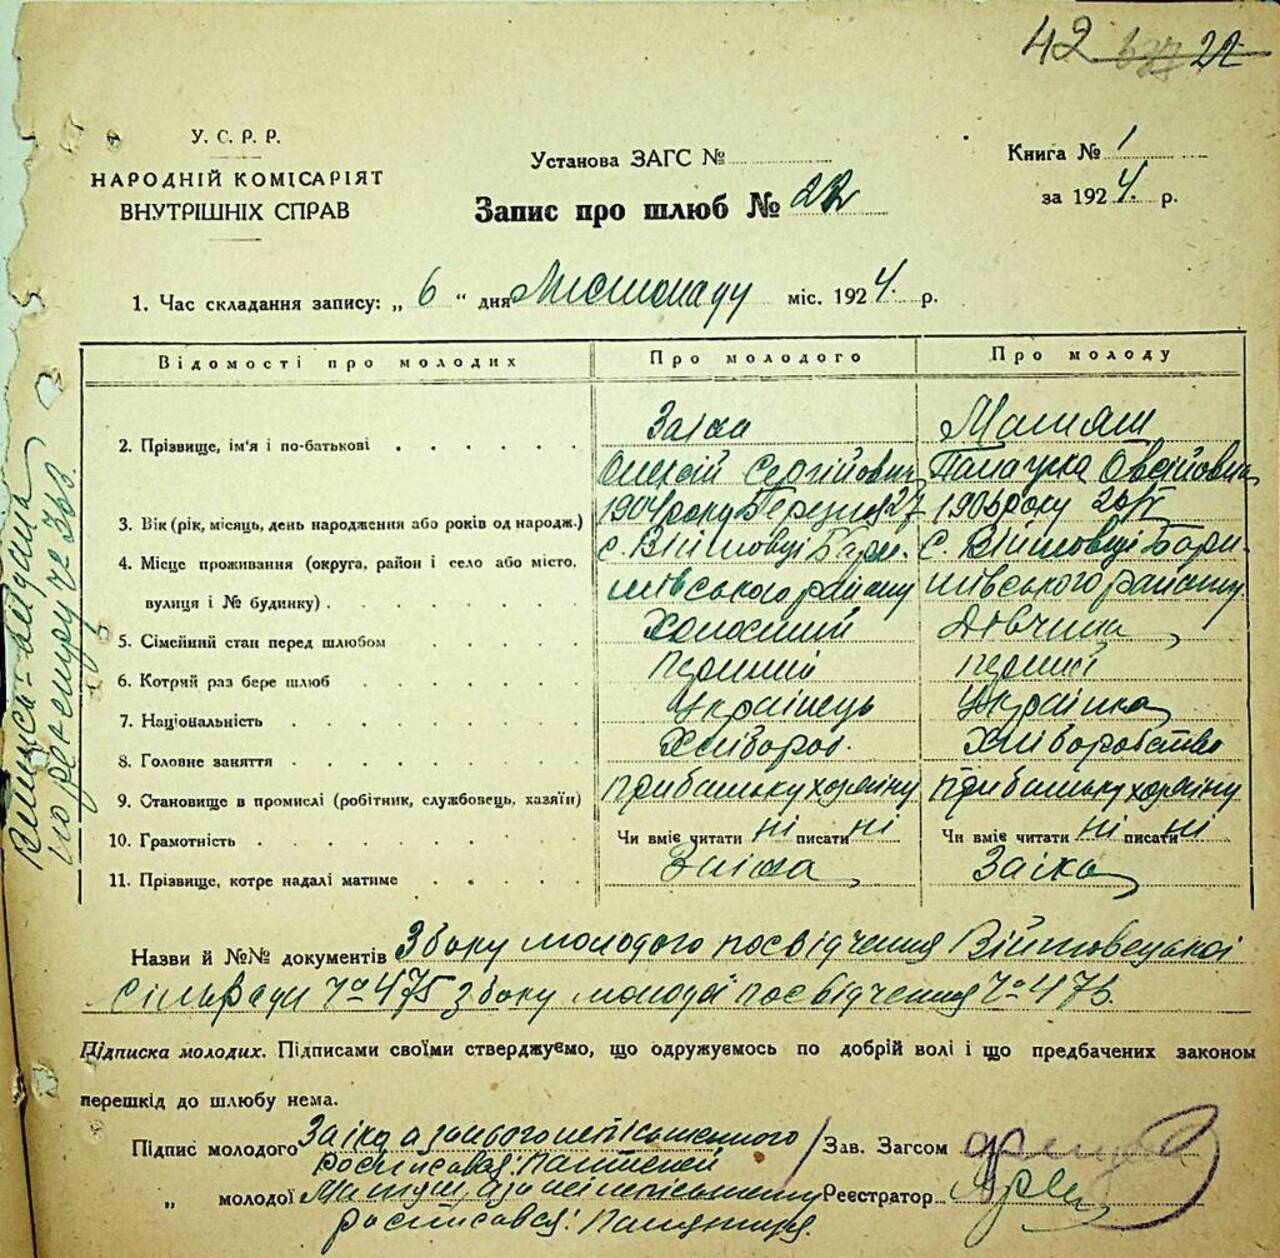 42 22
У. С. Р. Р.
НАРОДНІЙ КОМІСАРІЯТ
ВНУТРІШНІХ СПРАВ
Установа ЗАГС №
Запис про шлюб № 22
Книга № 1
за 1924. р.
1. Час складання запису: „ 6 “ дня Листопаду міс. 1924. р.
Відомості про молодих Про молодого Про молоду
2. Прізвище, ім'я і по-батькові Заіка
Олексій Сергійович Овсійовна
3. Вік (рік, місяць, день народження або років од народж.) 1904 року Березня 27 1906 року
4. Місце проживання (округа, район і село або місто, с. Війтовці Бари- с. Війтовці Бари-
вулиця і № будинку) шівського району шівського району
5. Сімейний стан перед шлюбом Холостий Дівчина
6. Котрий раз бере шлюб перший перший
7. Національність Українець Українка
8. Головне заняття Хлібороб. Хліборобство
9. Становище в промислі (робітник, службовець, хазяїн) при батьку хазяіну при батьку хазяіну
10. Грамотність Чи вміє читати ні писати ні Чи вміє читати ні писати ні
11. Прізвище, котре надалі матиме Заіка Заіка
Назви й №№ документів З боку молодого посвідчення Війтовецької
сільради № 475 з боку молодої посвідчення № 476.
Підписка молодих. Підписами своїми стверджуємо, що одружуємось по добрій волі і що предбачених законом
перешкід до шлюбу нема.
Підпис молодого Заіка а за нього неписьменного Зав. Загсом
росписався:
„ молодої а за неі неписьменну Реєстратор
росписався:
Випись видана
по реєстру № 363.